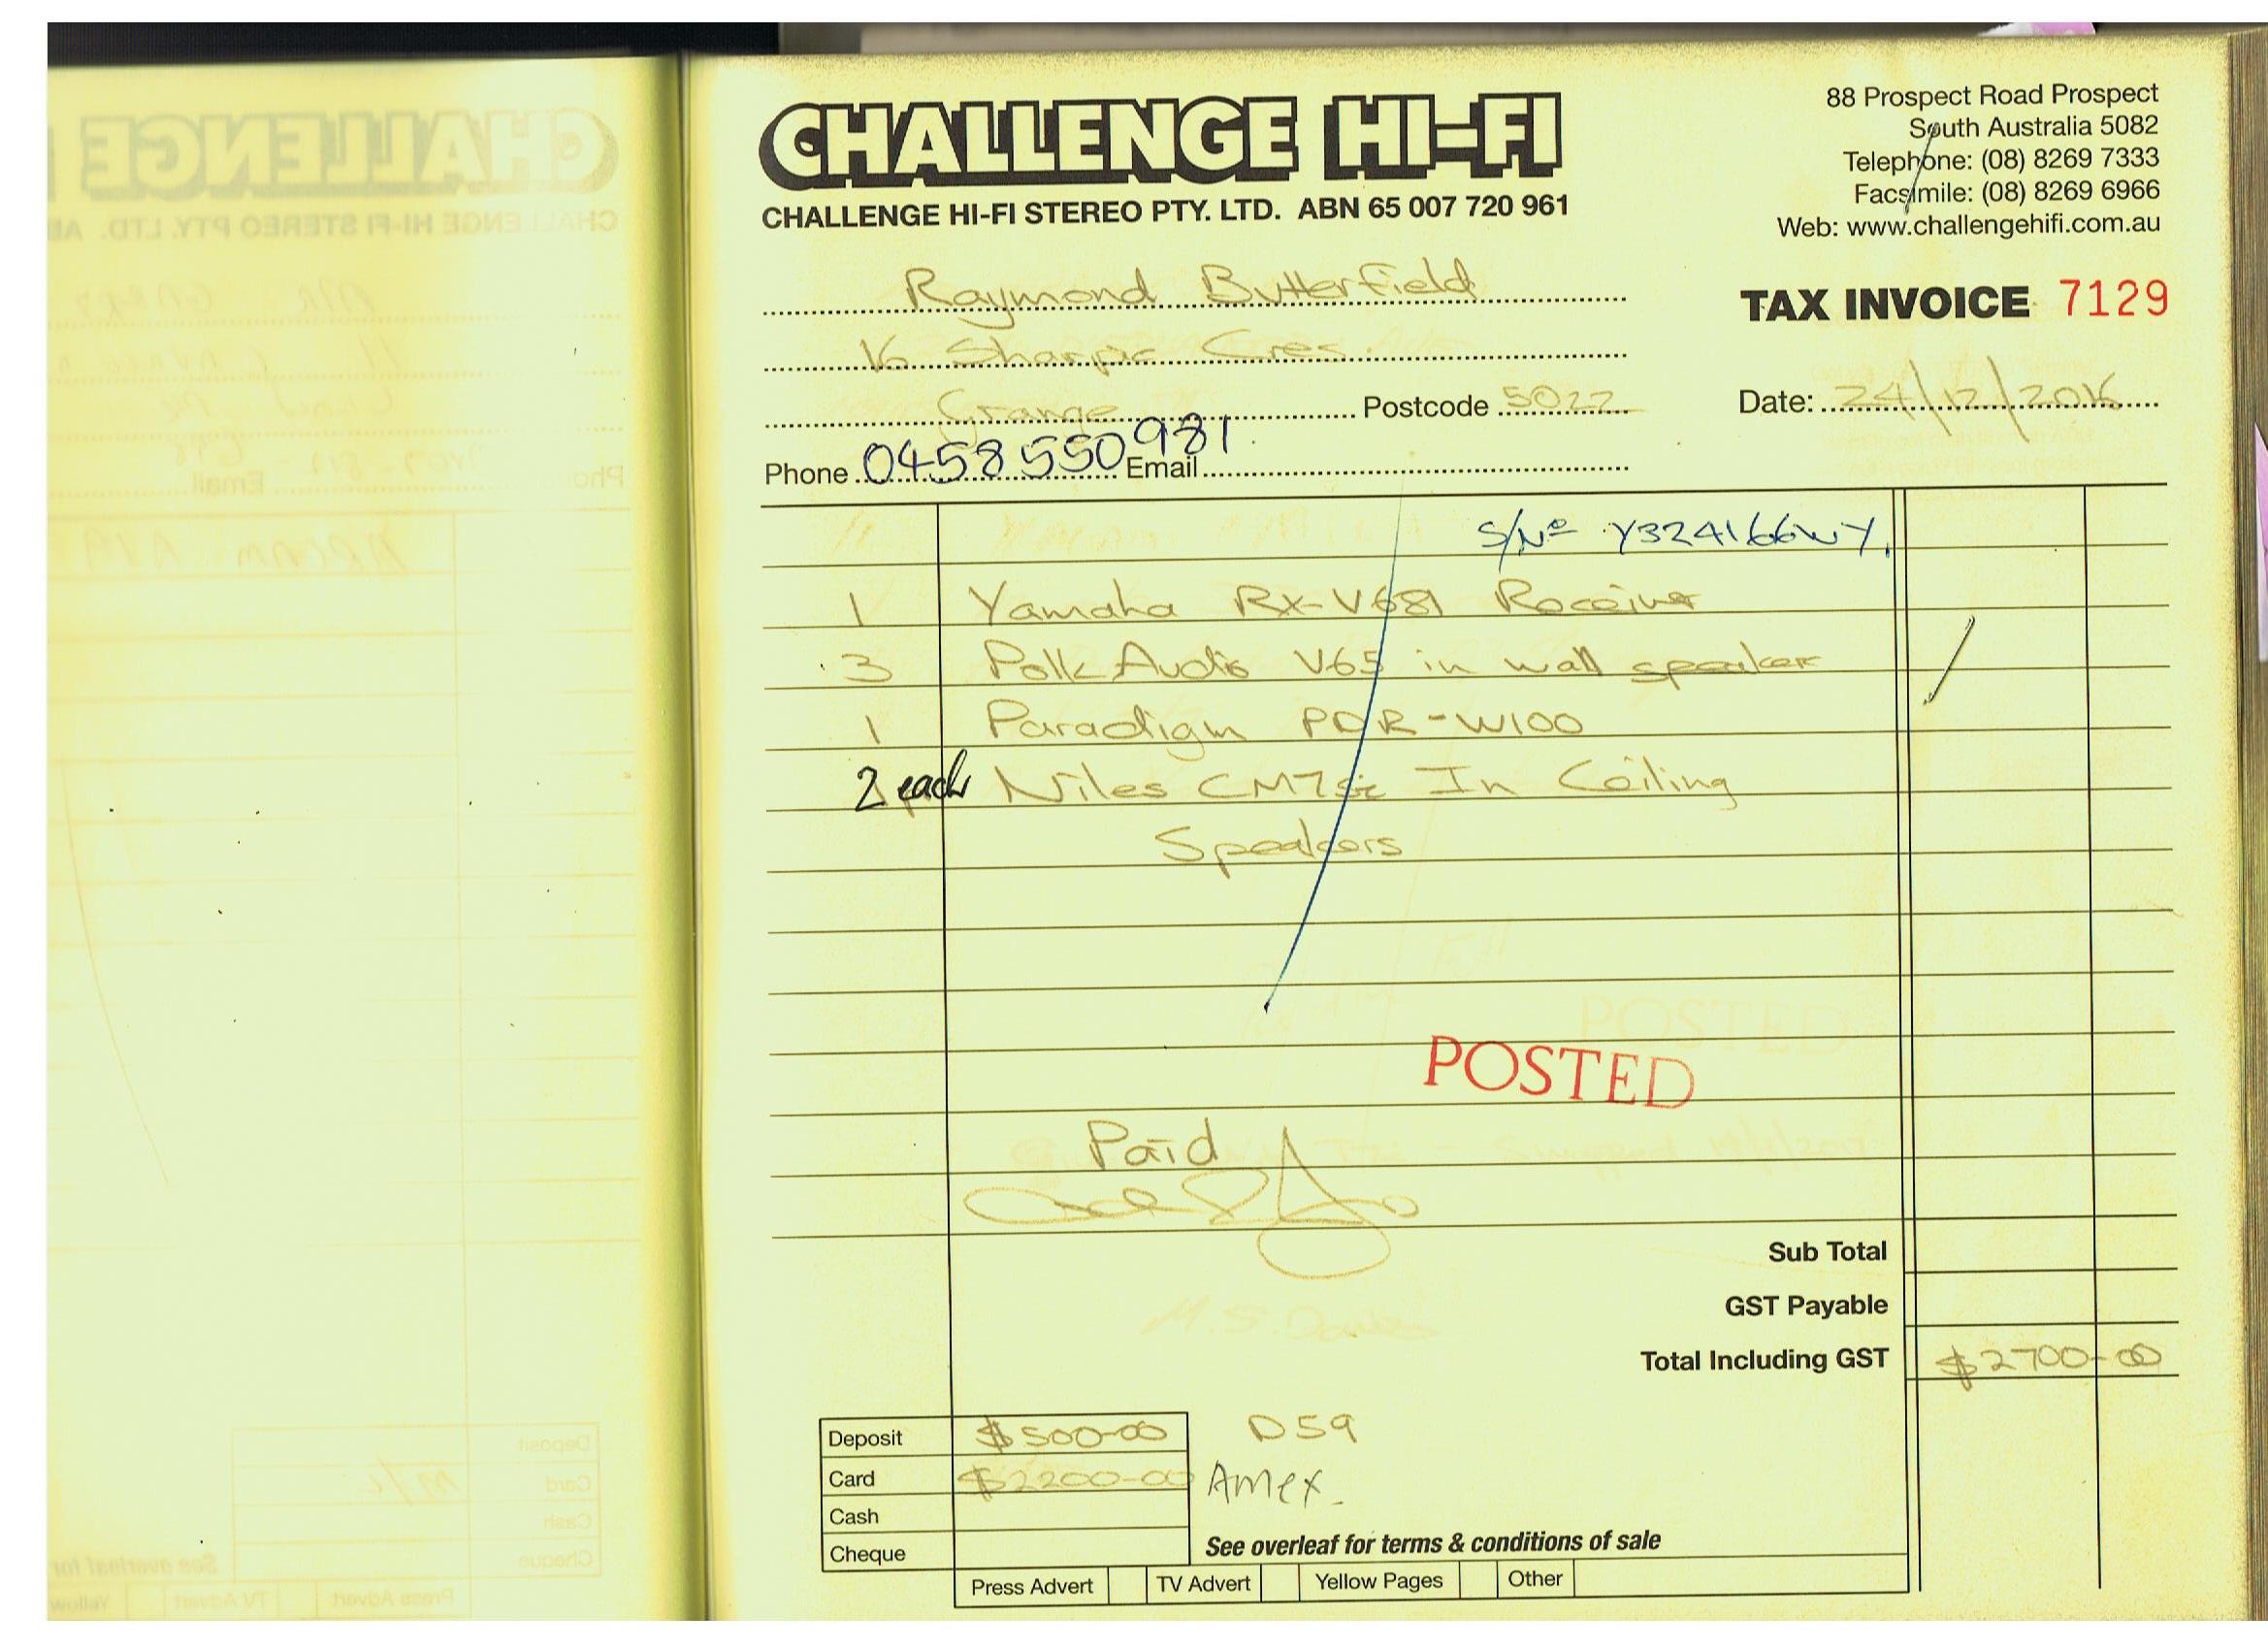 CHALLENGE HI-FI
CHALLENGE HI-FI STEREO PTY. LTD. ABN 65 007 720 961
88 Prospect Road Prospect
South Australia 5082
Telephone: (08) 8269 7333
Facsimile: (08) 8269 6966
Web: www.challengehifi.com.au
TAX INVOICE 7129
Raymond Butterfield
16 Sharpie Cres
Grange Postcode 5022
Date: 24/12/2016
Phone 0458 550 981 Email
S/No Y324166WY
1 Yamaha RX-V681 Receiver
3 Polk Audio V65 in wall speaker
1 Paradigm PDR-W100
2 each Niles CM7si In Ceiling
Speakers
POSTED
Paid
Sub Total
GST Payable
Total Including GST $2700-00
Deposit $500-00 D59
Card $2200-00 Amex.
Cash
Cheque
See overleaf for terms & conditions of sale
Press Advert TV Advert Yellow Pages Other